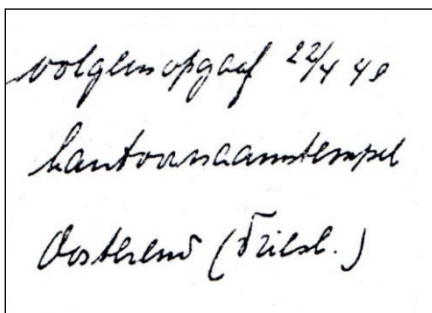 volgens opgaaf 22/4 40
kantoornaamstempel
Oosterend (Friesl.)